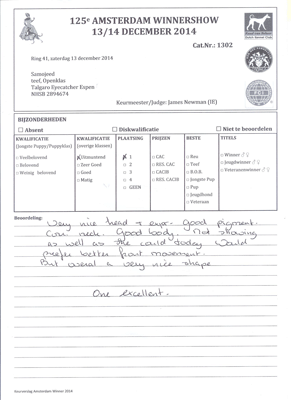 125e AMSTERDAM WINNERSHOW
13/14 DECEMBER 2014
Cat.Nr.: 1302
Ring 41, zaterdag 13 december 2014
Samojeed
teef, Openklas
Talgaro Eyecatcher Espen
NHSB 2894674
Keurmeester/Judge: James Newman (IE)
BIJZONDERHEDEN
Absent
Diskwalificatie
Niet te beoordelen
KWALIFICATIE
(Jongste Puppy/Puppyklas)
Veelbelovend
Belovend
Weinig belovend
KWALIFICATIE
(overige klassen)
Uitmuntend
Zeer Goed
Goed
Matig
PLAATSING
1
2
3
4
GEEN
PRIJZEN
CAC
RES. CAC
CACIB
RES. CACIB
BESTE
Reu
Teef
B.O.B.
Jongste Pup
Pup
Jeugdhond
Veteraan
TITELS
Winner ♂ ♀
Jeugdwinner ♂ ♀
Veteranenwinner ♂ ♀
Beoordeling:
Very nice head & eyes. Good pigment.
neck. Good body. Not showing
as well as she could today. Would
prefer better front movement.
But overal a very nice shape
One excellent.
Keurverslag Amsterdam Winner 2014